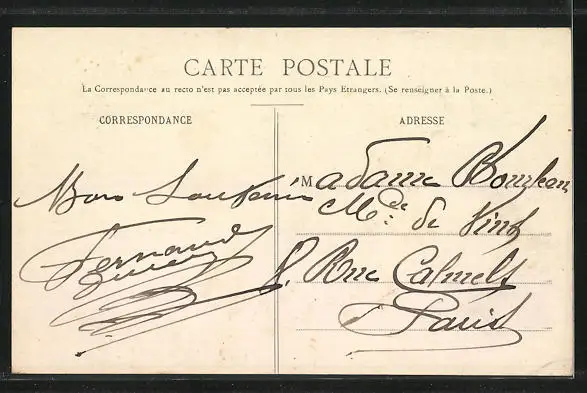 CARTE POSTALE
La Correspondance au recto n'est pas acceptée par tous les Pays Etrangers. (Se renseigner à la Poste.)
CORRESPONDANCE
ADRESSE
Bon Souvenir
Fernand
Madame
Mde de Vins
8. Rue Calmels
Paris